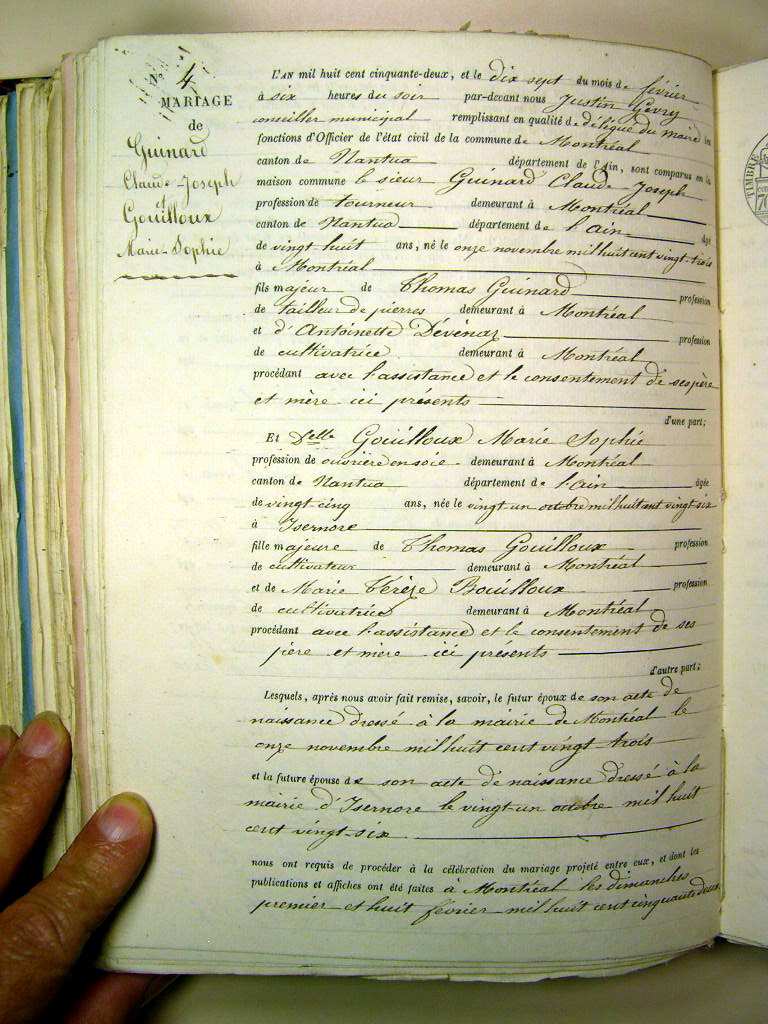 N° 4
MARIAGE
de
Guinard
Claude-Joseph
et
Gouilloux
Marie-Sophie
L'AN mil huit cent cinquante-deux, et le dix sept du mois de février
à six heures du soir par-devant nous Justin Gevry
conseiller municipal remplissant en qualité de délégué du maire les
fonctions d'Officier de l'état civil de la commune de Montréal
canton de Nantua département de l'ain, sont comparus en la
maison commune le sieur Guinard Claude-Joseph
profession de tourneur demeurant à Montréal
canton de Nantua département de l'ain âgé
de vingt huit ans, né le onze novembre mil huit cent vingt-trois
à Montréal
fils majeur de Thomas Guinard profession
de tailleur de pierres demeurant à Montréal
et d'Antoinette Dévénaz profession
de cultivatrice demeurant à Montréal
procédant avec l'assistance et le consentement de ses père
et mère ici présents
d'une part;
Et Delle Gouilloux Marie Sophie
profession de ouvrière en soie demeurant à Montréal
canton de Nantua département de l'ain âgée
de vingt-cinq ans, née le vingt-un octobre mil huit cent vingt-six
à Isernore
fille majeure de Thomas Gouilloux profession
de cultivateur demeurant à Montréal
et de Marie Térèze Bouilloux profession
de cultivatrice demeurant à Montréal
procédant avec l'assistance et le consentement de ses
père et mère ici présents
d'autre part;
Lesquels, après nous avoir fait remise, savoir, le futur époux de son acte de
naissance dressé à la mairie de Montréal le
onze novembre mil huit cent vingt trois
et la future épouse de son acte de naissance dressé à la
mairie d'Isernore le vingt-un octobre mil huit
cent vingt-six
nous ont requis de procéder à la célébration du mariage projeté entre eux, et dont les
publications et affiches ont été faites à Montréal les dimanches
premier et huit février mil huit cent cinquante deux
TIMBRE